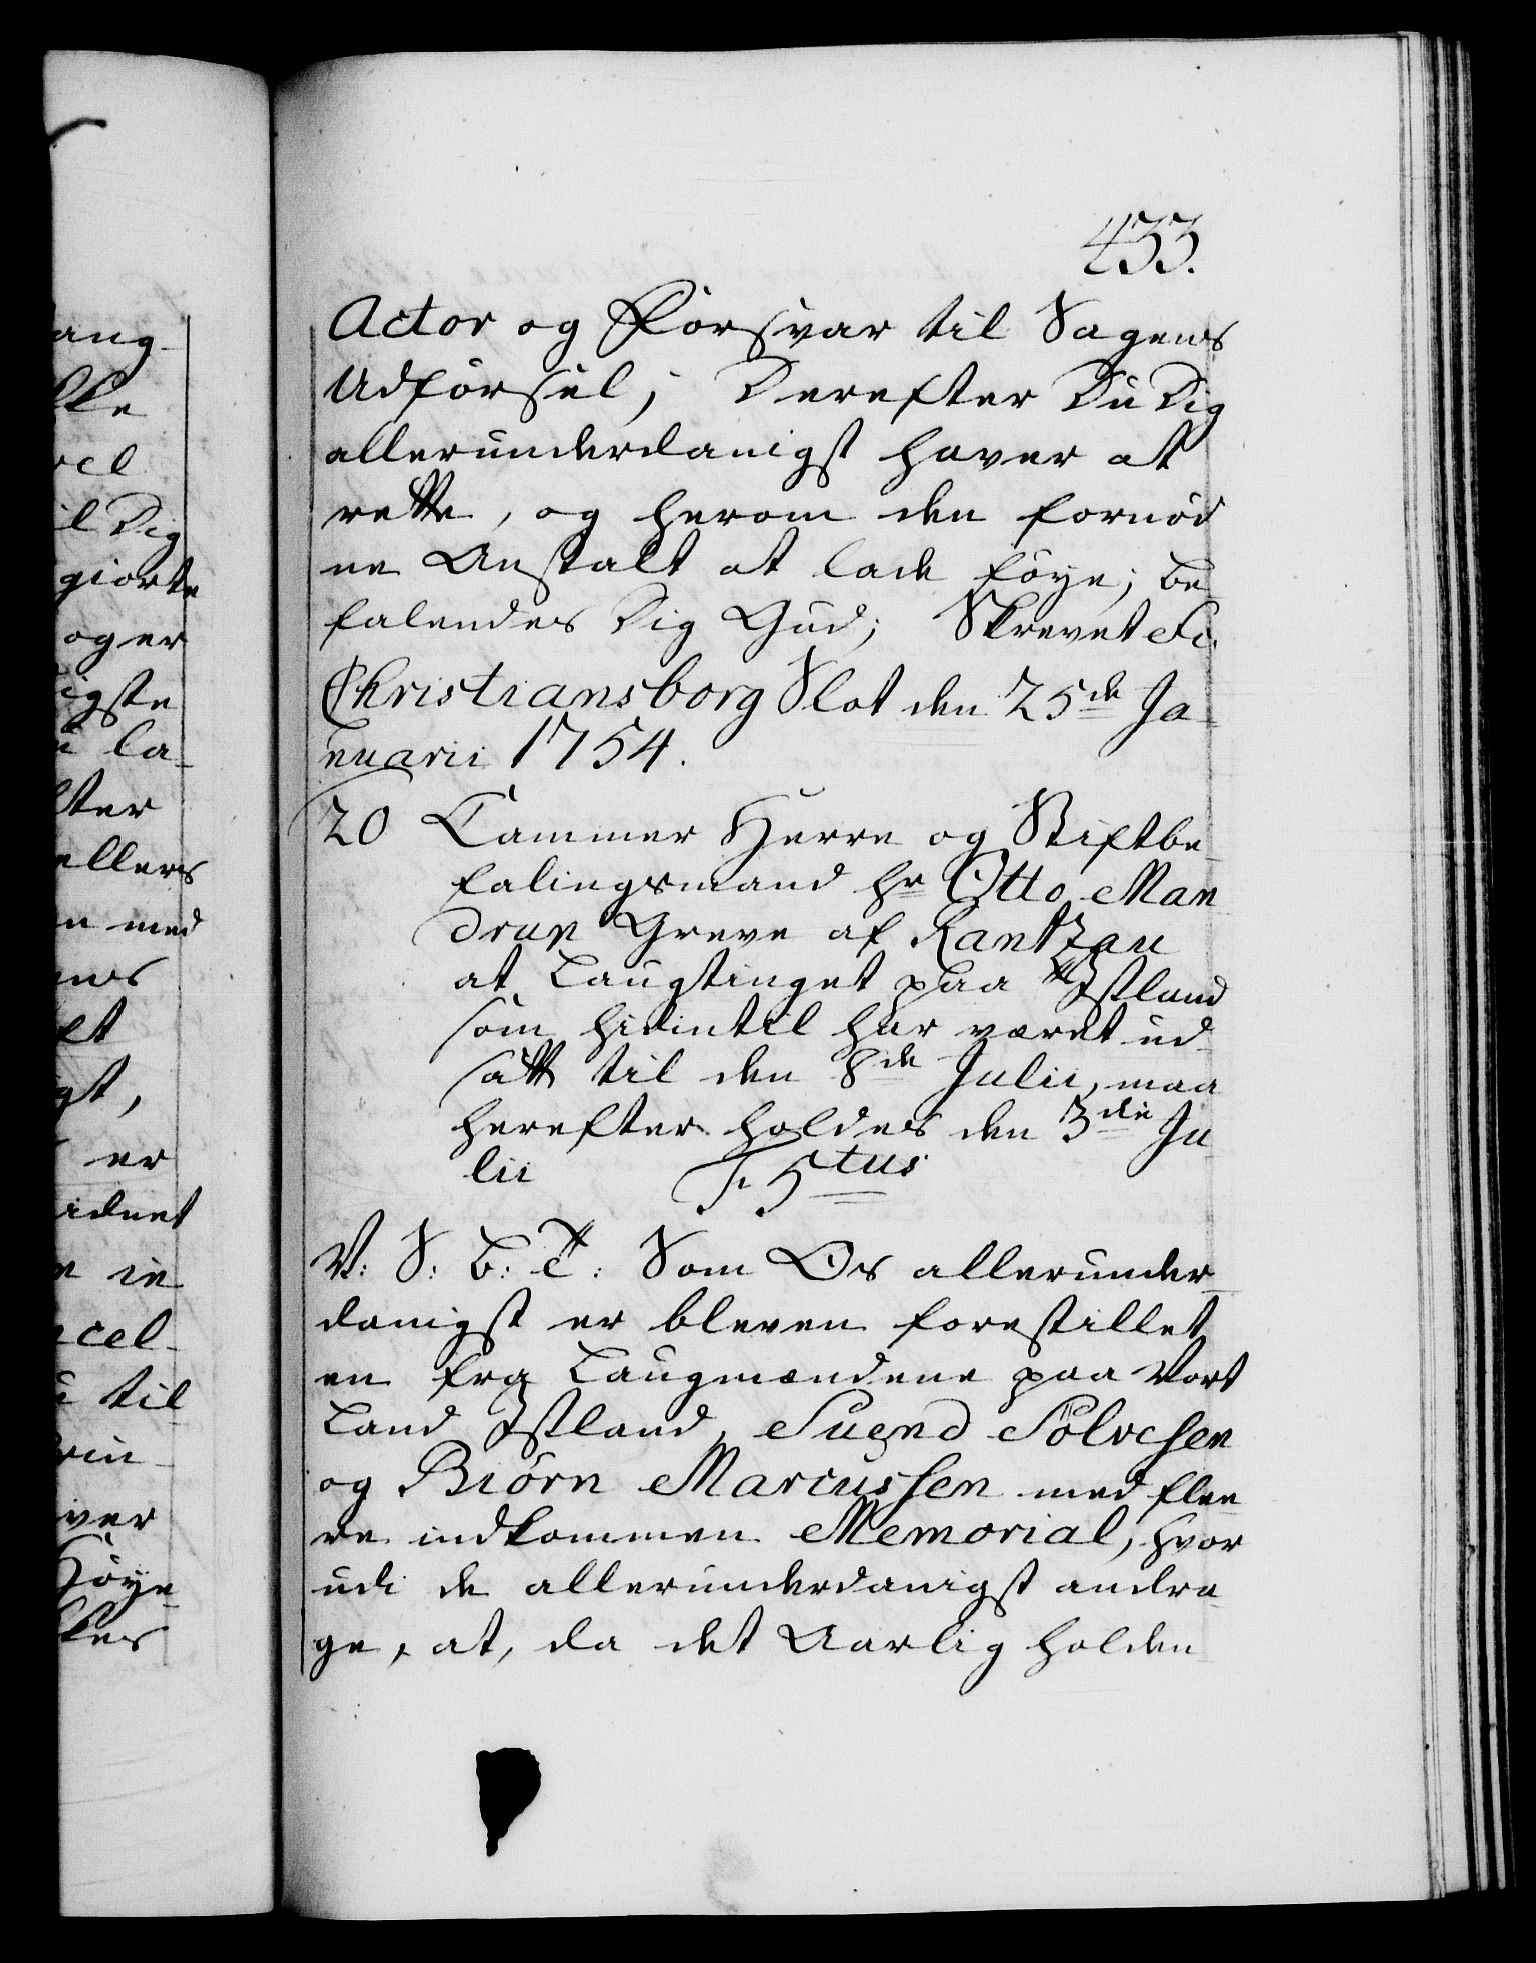 433.
Actor og Forsvar til Sagens
Udførsel; Derefter Du Dig
allerunderdanigst haver at
rette, og herom den fornød
ne Anstalt at lade føye; be-
falendes Dig Gud; Skrevet &c.
Christiansborg Slot den 25de Ja-
nuarii 1754.
20 Cammer Herre og Stiftbe-
falingsmand hr Otto Man
drup Greve af Rantzau
at Laugtinget paa Iisland
som hidintil har været ud
satt til den 8de Julii, maa
herefter holdes den 3die Ju
lii F. 5tus
V: S: b: t: Som Os allerunder-
danigst er bleven forestillet
en fra Laugmændene paa Vort
Land Iisland, Suend Sölvesen
og Biörn Marcussen med flee
re indkommen Memorial, hvor
udi de allerunderdanigst andra-
ge, at, da det Aarlig holden
ang-
ske
vel
il Dig
giorte
og er
igste
u la-
ter
ellers
n med
ens
et
gst,
er
idnet
ie
ncel-
til
rin-
iver
Høye-
kes